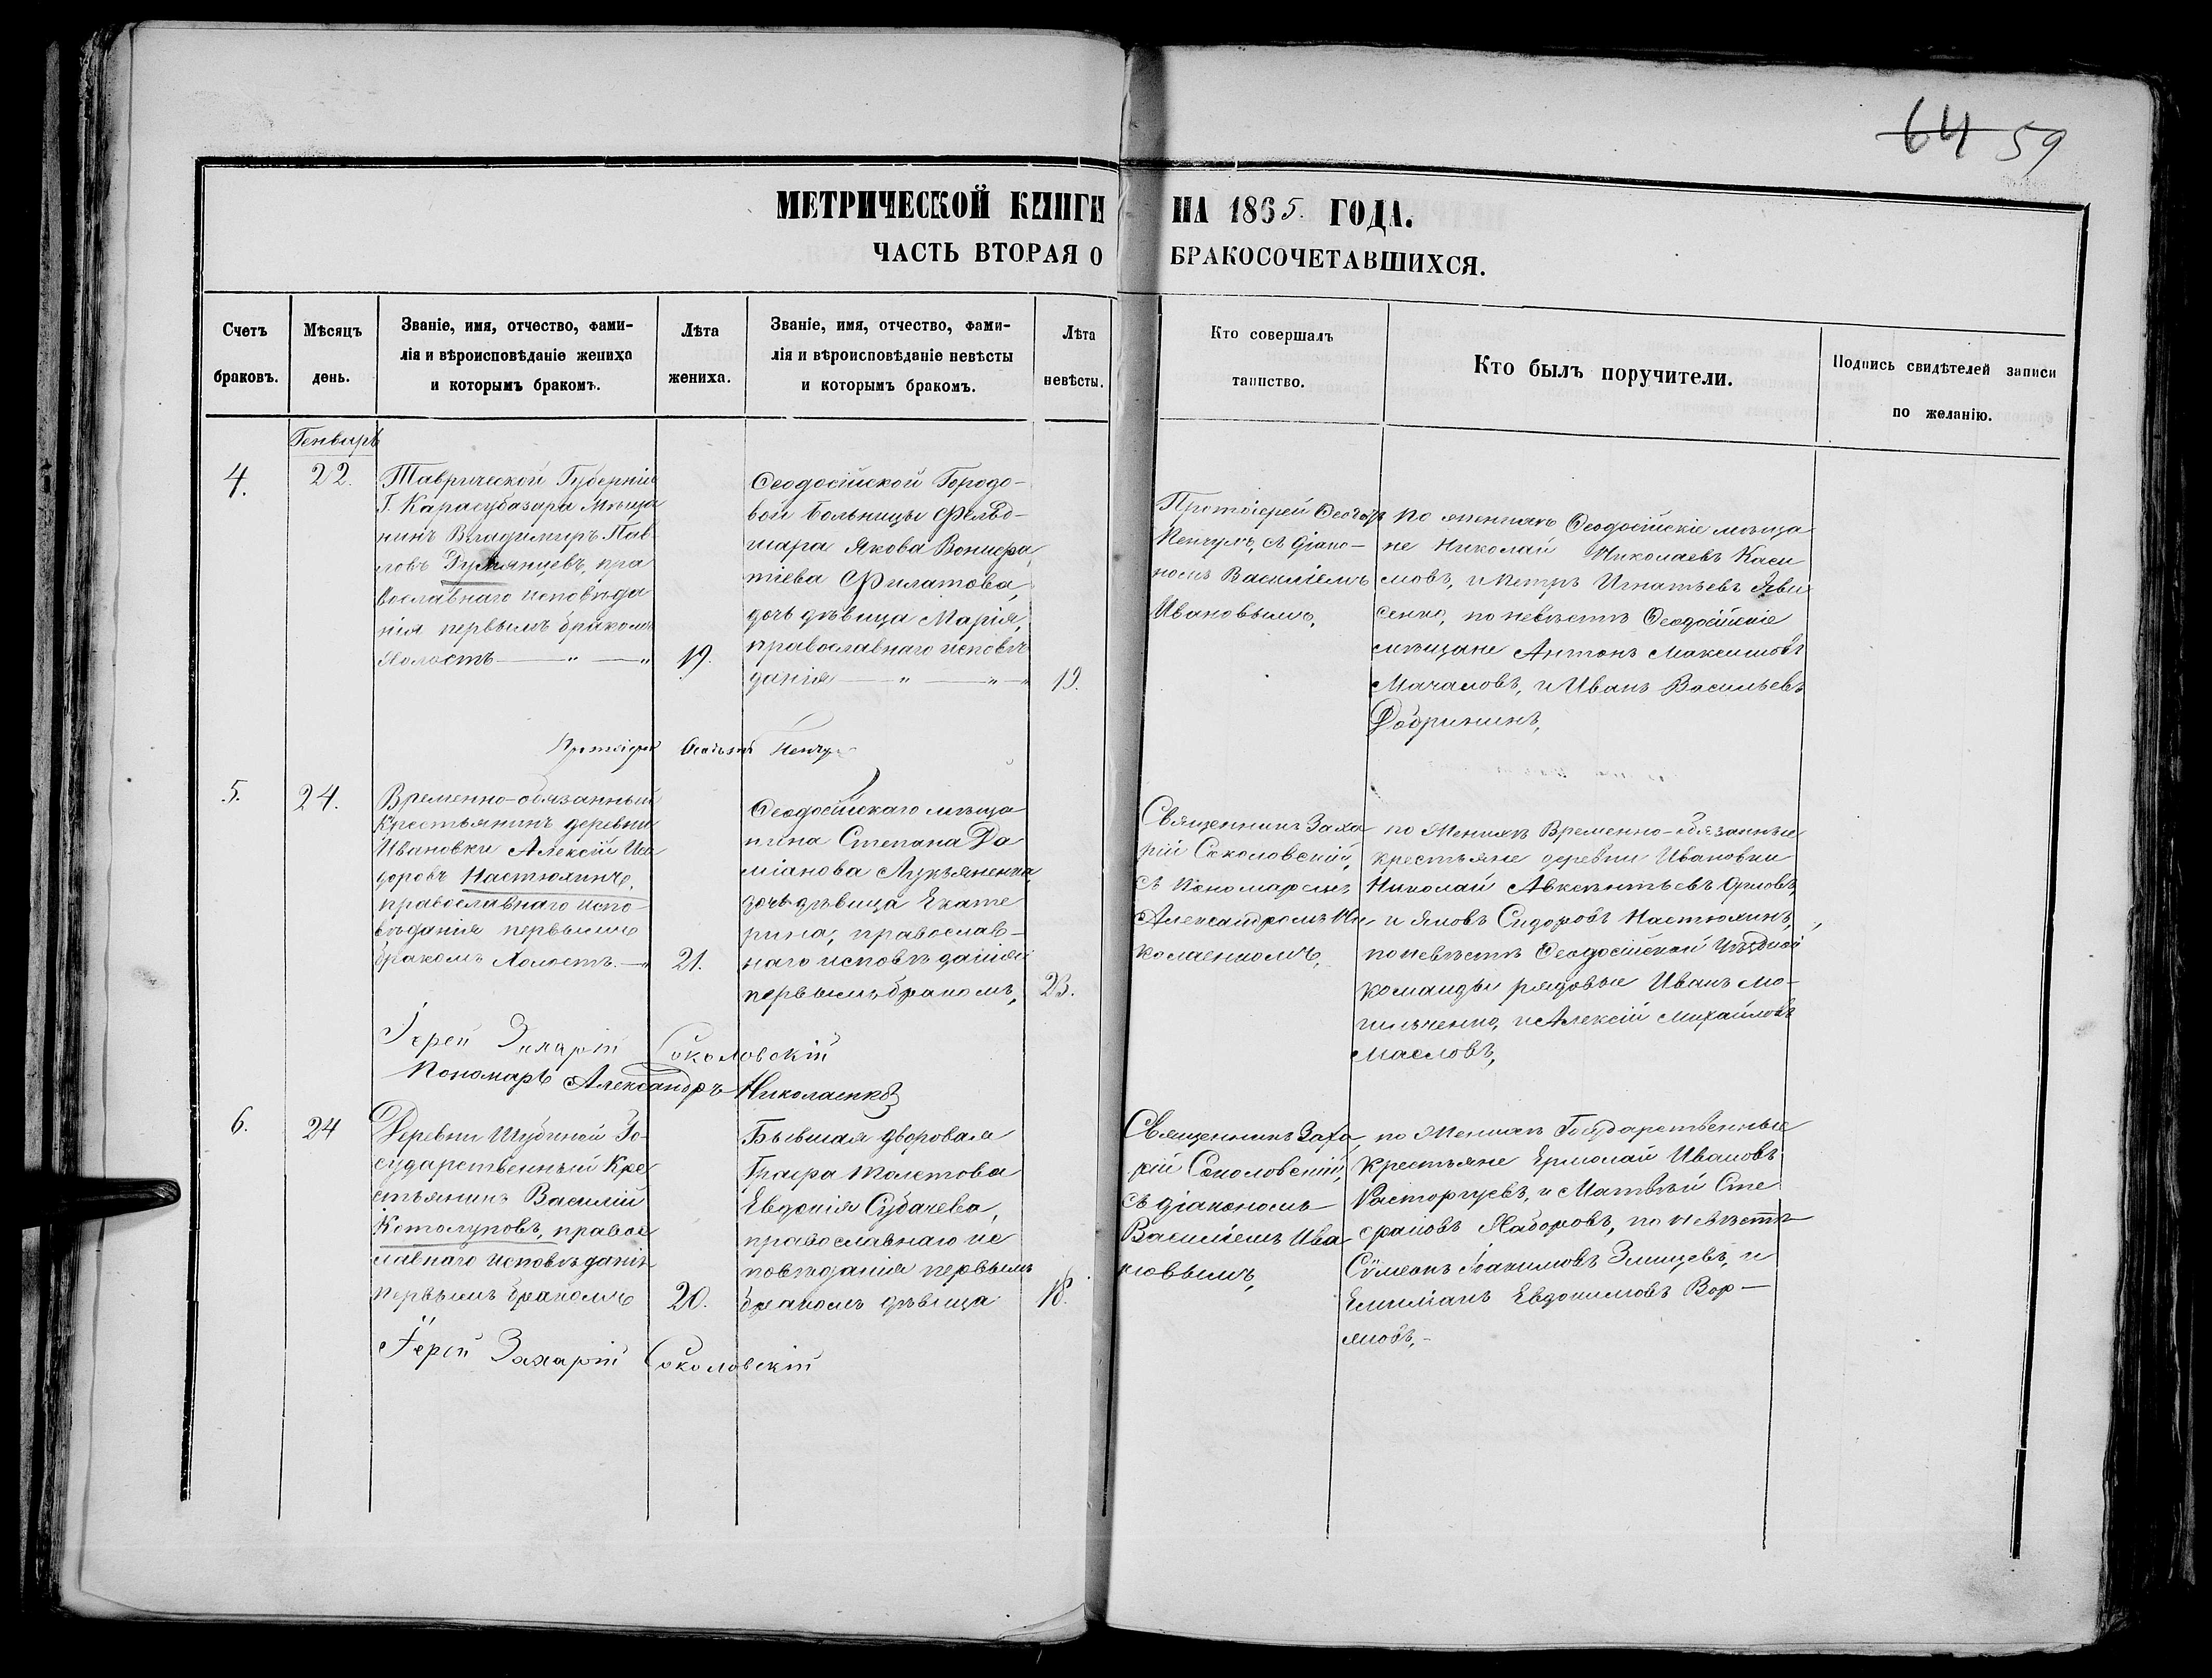 64 59
МЕТРИЧЕСКОЙ КНИГИ НА 1865. ГОДА.
ЧАСТЬ ВТОРАЯ О БРАКОСОЧЕТАВШИХСЯ.
Счетъ
браковъ.
Мѣсяцъ
день.
Званіе, имя, отчество, фами-
лія и вѣроисповѣданіе жениха
и которымъ бракомъ.
Лѣта
жениха.
Званіе, имя, отчество, фами-
лія и вѣроисповѣданіе невѣсты
и которымъ бракомъ.
Лѣта
невѣсты.
Кто совершалъ
таинство.
Кто былъ поручители.
Подпись свидѣтелей записи
по желанію.
Генварь
4.
22.
Таврической Губерніи
Г. Карасубазара Мѣща
нинъ Владимиръ Пав-
ловъ Румянцевъ, пра
вославнаго исповѣда
нія первымъ бракомъ
Холостъ — " — "
19.
Ѳеодосійской Городо-
вой больницы Фельд-
шара Якова
Филатова,
дочь дѣвица Марія,
православнаго исповѣ
данія — " — " — "
19.
Протоіерей
съ діако-
номъ Василіемъ
Ивановымъ,
по женихѣ Ѳеодосійскіе мѣща
не Николай Николаевъ Каси
мовъ, и Петръ Игнатьевъ
сенко, по невѣстѣ Ѳеодосійскіе
мѣщане Антонъ Максимовъ
Мачаловъ, и Иванъ Васильевъ
Добрининъ,
Протоіерей
5.
24.
Временно-обязанный
Крестьянинъ деревни
Ивановки Алексій Иси
доровъ Настюхинъ,
православнаго испо-
вѣданія первымъ
бракомъ Холостъ. — "
21.
Ѳеодосійскаго мѣща
нина Степана Да
міанова Лукьяненка,
дочь дѣвица Екате
рина, православ-
наго исповѣданія
первымъ бракомъ,
23.
Священникъ Заха
рій Соколовскій,
съ пономаремъ
Александромъ Ни
колаенкомъ,
по Женихѣ Временно-обязанные
крестьяне деревни Ивановки
Николай Авксентьевъ Орловъ,
и Яковъ Сидоровъ Настюхинъ,
по невѣстѣ Ѳеодосійской Уѣздной
команды рядовые Иванъ Мо-
гильченко, и Алексій Михайловъ
Масловъ,
Іерей Захарій Соколовскій
Пономарь Александръ Николаенко
6.
24
Деревни Шубиной Го-
сударственный Кре
стьянинъ Василій
Котолуповъ, правос
лавнаго исповѣданія
первымъ бракомъ
20.
Бывшая дворовая
Графа Толстова
Евдокія Субачева,
православнаго ис
повѣданія первымъ
бракомъ дѣвица
18.
Священникъ Заха
рій Соколовскій,
съ діакономъ
Василіемъ Ива
новымъ,
по Женихѣ Государственные
Крестьяне Ермолай Ивановъ
Расторгуевъ, и Матвѣй Сте
фановъ Хаборовъ, по невѣстѣ
Сѵмеонъ Іоакимовъ и
Емиліанъ Евдокимовъ Вор—
ановъ, -
Іерей Захарій Соколовскій